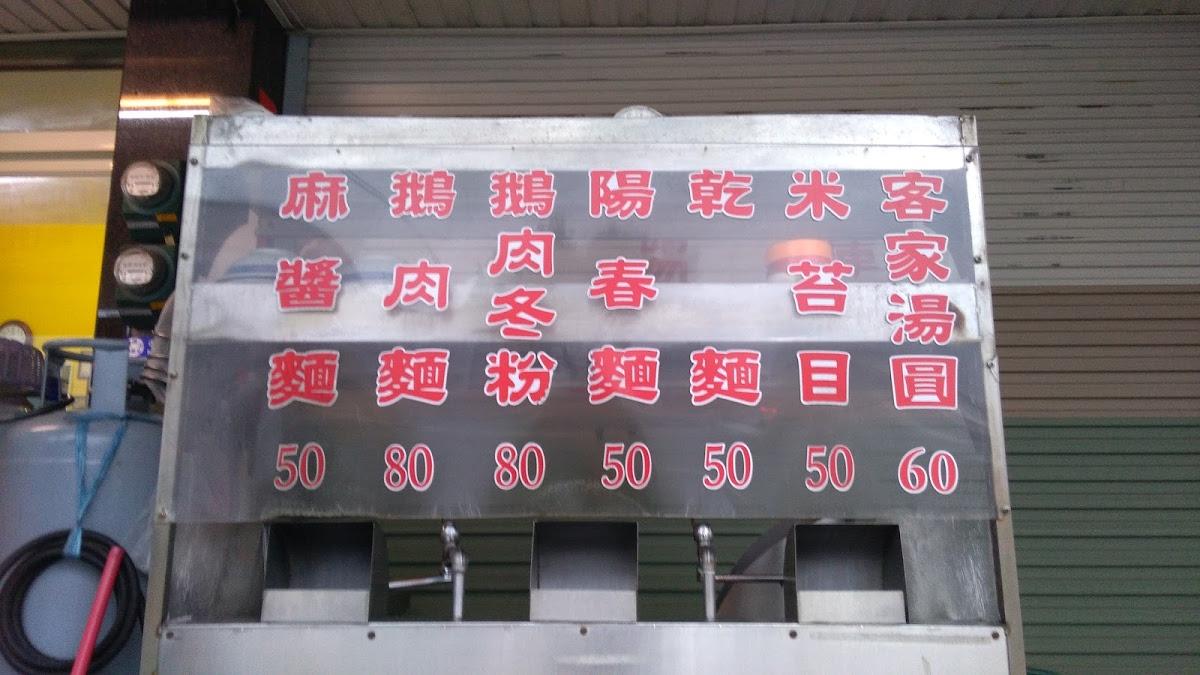 客家湯圓 60
米苔目 50
乾麵 50
陽春麵 50
鵝肉冬粉 80
鵝肉麵 80
麻醬麵 50